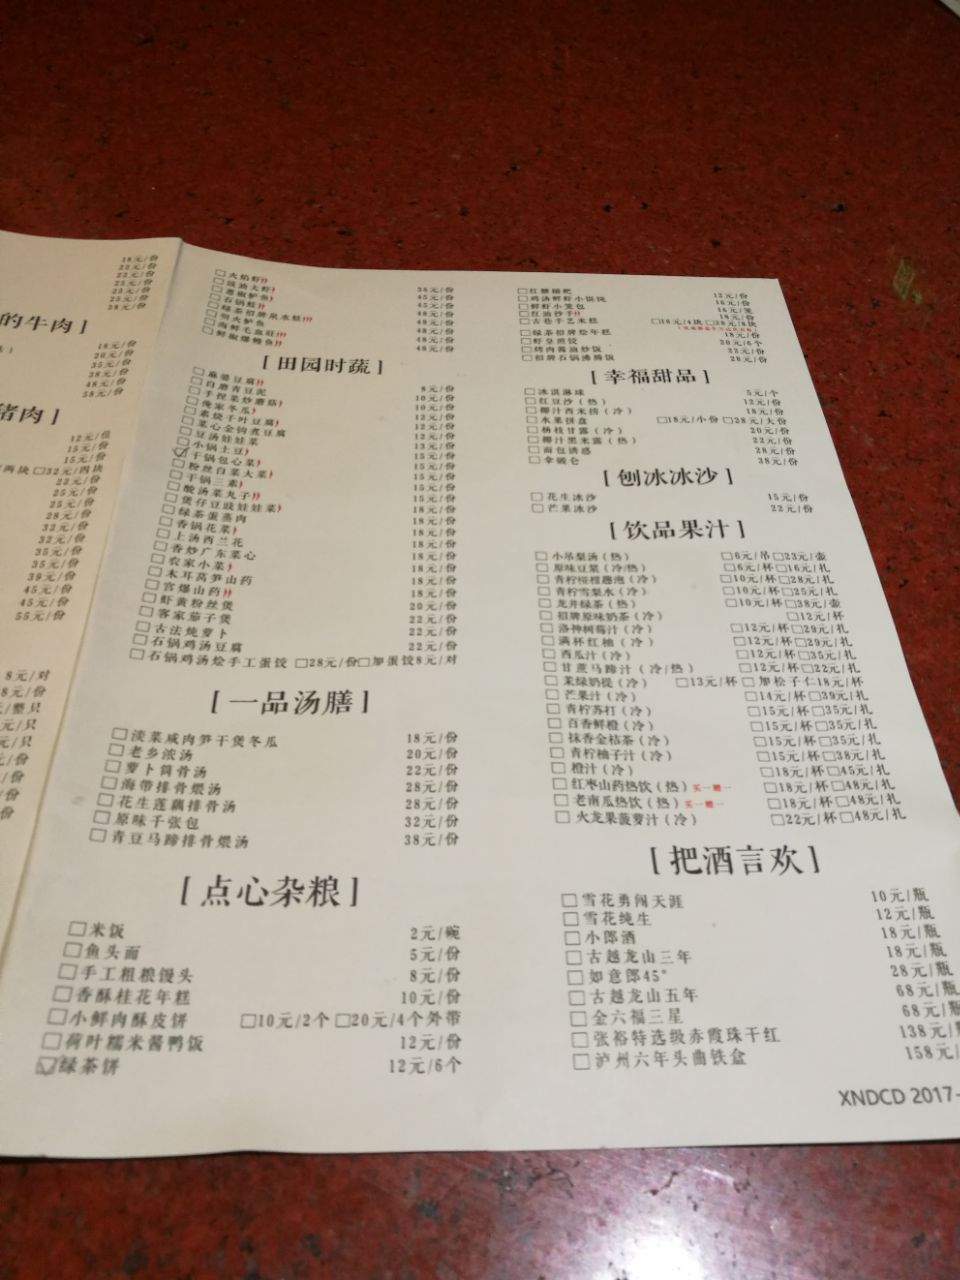 18元/份
22元/份
22元/份
25元/份
25元/份
25元/份
28元/份
的牛肉]
18元/份
20元/份
35元/份
38元/份
48元/份
58元/份
猪肉]
12元/位
15元/份
15元/份
两块 □32元/四块
22元/份
25元/份
25元/份
28元/份
32元/份
32元/份
35元/份
35元/份
39元/份
45元/份
45元/份
55元/份
8元/对
8元/份
元/整只
元/只
元/只
元/份
元/份
元/份
份
□火焰虾 38元/份
□豉油大虾 45元/份
□葱椒鲈鱼 45元/份
□石锅鲑 48元/份
□绿茶招牌泉水鮰 48元/份
□炝火鲈鱼 48元/份
□海鲜毛血旺 48元/份
□鲜椒爆鳗鱼 48元/份
[田园时蔬]
□麻婆豆腐 8元/份
□自磨青豆泥 10元/份
□手捏菜炒蘑菇 10元/份
□俺家冬瓜 12元/份
□素烧千叶豆腐 12元/份
□菜心金钩煮豆腐 12元/份
□豆汤娃娃菜 13元/份
□小锅土豆 15元/份
☑干锅包心菜 15元/份
□粉丝白菜大菜 15元/份
□干锅三素 15元/份
□酸汤菜丸子 15元/份
□煲仔豆豉娃娃菜 15元/份
□绿茶蛋蒸肉 18元/份
□香锅花菜 18元/份
□上汤西兰花 18元/份
□香炒广东菜心 18元/份
□农家小菜 18元/份
□木耳莴笋山药 18元/份
□宫爆山药 18元/份
□虾黄粉丝煲 20元/份
□客家茄子煲 22元/份
□古法炖萝卜 22元/份
□石锅鸡汤豆腐 22元/份
□石锅鸡汤烩手工蛋饺 □28元/份□加蛋饺8元/对
[一品汤膳]
□淡菜咸肉笋干煲冬瓜 18元/份
□老乡浓汤 20元/份
□萝卜筒骨汤 22元/份
□海带排骨煨汤 28元/份
□花生莲藕排骨汤 28元/份
□原味千张包 32元/份
□青豆马蹄排骨煨汤 38元/份
[点心杂粮]
□米饭 2元/碗
□鱼头面 5元/份
□手工粗粮馒头 8元/份
□香酥桂花年糕 10元/份
□小鲜肉酥皮饼 □10元/2个 □20元/4个外带
□荷叶糯米酱鸭饭 12元/份
☑绿茶饼 12元/6个
□红糖糍粑 12元/份
□鸡汤鲜虾小馄饨 16元/份
□鲜虾小笼包 16元/笼
□红油抄手 18元/份
□古巷手艺米糕 □16元/4块 □28元/8块
□绿茶招牌烩年糕 18元/份
□虾皇煎饺 20元/6个
□烤肉酱油炒饭 22元/份
□招牌石锅沸腾饭 28元/份
[幸福甜品]
□冰淇淋球 5元/个
□红豆沙(热) 12元/份
□椰汁西米捞(冷) 18元/份
□水果拼盘 □18元/小份 □28元/大份
□杨枝甘露(冷) 20元/份
□椰汁黑米露(热) 22元/份
□面包诱惑 28元/份
□拿破仑 38元/份
[刨冰冰沙]
□花生冰沙 15元/份
□芒果冰沙 22元/份
[饮品果汁]
□小吊梨汤(热) □6元/吊□23元/壶
□原味豆浆(冷/热) □6元/杯□16元/扎
□青柠椪柑趣泡(冷) □10元/杯□28元/扎
□青柠雪梨水(冷) □10元/杯□25元/扎
□龙井绿茶(热) □10元/杯□38元/壶
□招牌原味奶茶(冷) □12元/杯
□洛神树莓汁(冷) □12元/杯□29元/扎
□满杯红柚(冷) □12元/杯□29元/扎
□西瓜汁(冷) □12元/杯□35元/扎
□甘蔗马蹄汁(冷/热) □12元/杯□22元/扎
□茉绿奶提(冷) □13元/杯 □加松子仁18元/杯
□芒果汁(冷) □14元/杯□39元/扎
□青柠苏打(冷) □15元/杯□35元/扎
□百香鲜橙(冷) □15元/杯□35元/扎
□抹香金桔茶(冷) □15元/杯□35元/扎
□青柠柚子汁(冷) □15元/杯□38元/扎
□橙汁(冷) □18元/杯□45元/扎
□红枣山药热饮(热)买一赠一 □18元/杯□48元/扎
□老南瓜热饮(热)买一赠一 □18元/杯□48元/扎
□火龙果菠萝汁(冷) □22元/杯□48元/扎
[把酒言欢]
□雪花勇闯天涯 10元/瓶
□雪花纯生 12元/瓶
□小郎酒 18元/瓶
□古越龙山三年 18元/瓶
□如意郎45° 28元/瓶
□古越龙山五年 68元/瓶
□金六福三星 68元/瓶
□张裕特选级赤霞珠干红 138元/
□泸州六年头曲铁盒 158元/
XNDCD 2017-